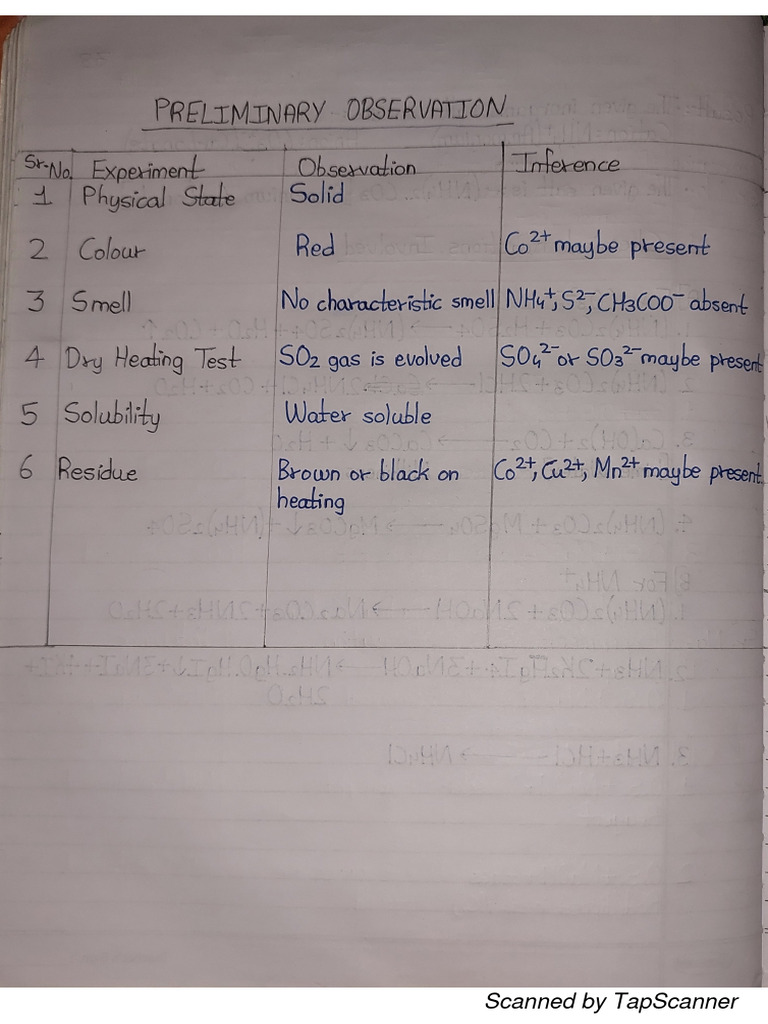 PRELIMINARY OBSERVATION
Sr.No. Experiment Observation Inference
1 Physical State Solid
2 Colour Red Co²⁺ maybe present
3 Smell No characteristic smell NH₄⁺, S²⁻, CH₃COO⁻ absent
4 Dry Heating Test SO₂ gas is evolved SO₄²⁻ or SO₃²⁻ maybe present
5 Solubility Water soluble
6 Residue Brown or black on Co²⁺, Cu²⁺, Mn²⁺ maybe present
heating
Scanned by TapScanner